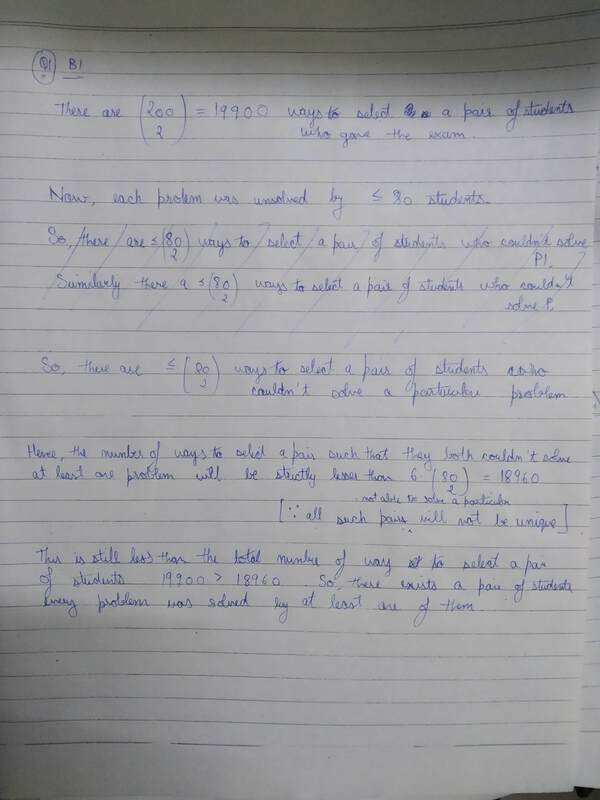 Q1 B1
There are (200 2) = 19900 ways to select a pair of students
who gave the exam.
Now, each problem was unsolved by ≤ 80 students.
So, there are ≤ (80 2) ways to select a pair of students who couldn't solve
P1.
Similarly there a ≤ (80 2) ways to select a pair of students who couldn't
solve P.
So, there are ≤ (80 2) ways to select a pair of students who
couldn't solve a particular problem
Hence, the number of ways to select a pair such that they both couldn't solve
at least one problem will be strictly lesser than 6 (80 2) = 18960
not able to solve a particular
[∵ all such pairs will not be unique]
This is still less than the total number of way to select a pair
of students 19900 > 18960 So, there exists a pair of students
Every problem was solved by at least one of them